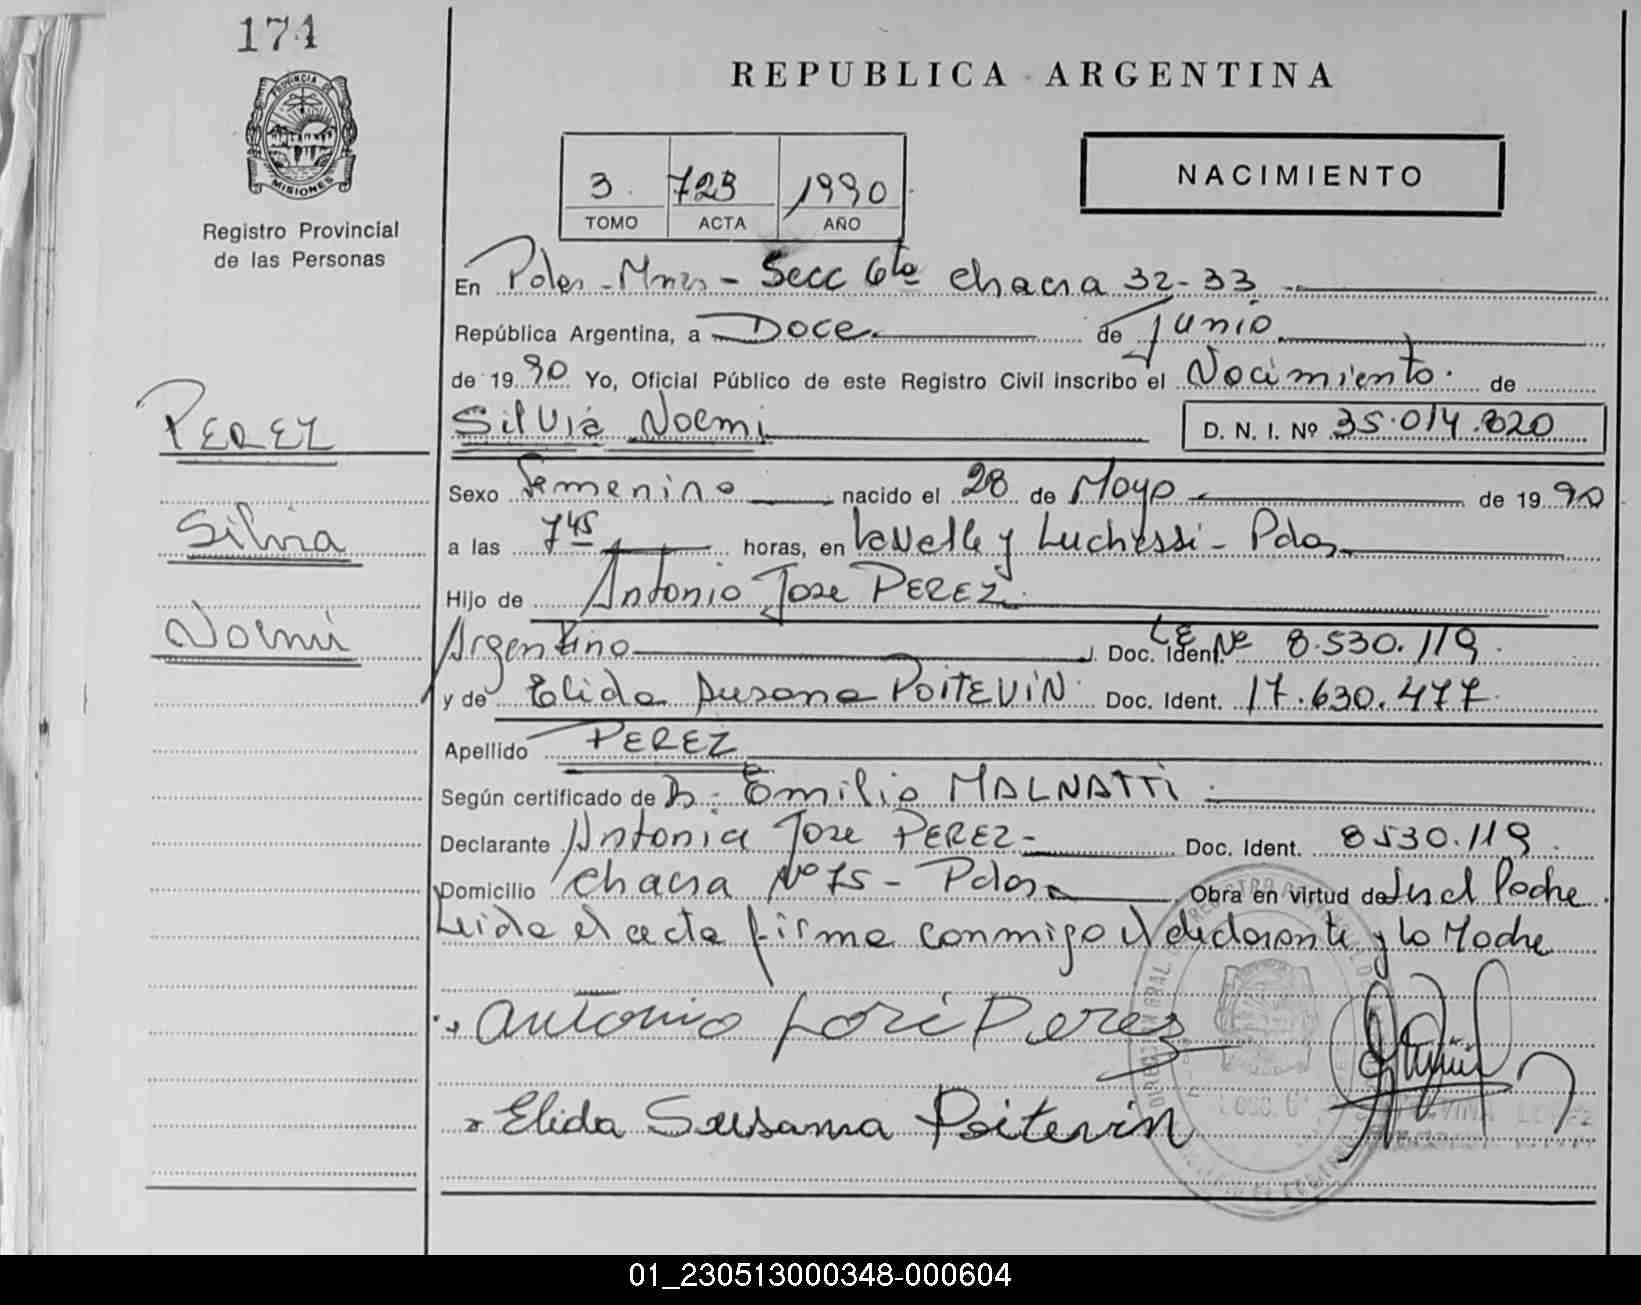 174
REPUBLICA ARGENTINA
PROVINCIA DE
MISIONES
Registro Provincial
de las Personas
3 723 1990
TOMO ACTA AÑO
NACIMIENTO
En Pdas - Mnes - Secc 6ta Chacra 32-33
República Argentina, a Doce de Junio
de 1990 Yo, Oficial Público de este Registro Civil inscribo el Nacimiento. de
Silvia Noemi D. N. I. Nº 35.014.820
PEREZ
Silvia
Noemi
Sexo Femenino nacido el 28 de Mayo de 1990
a las 7 45 horas, en Lavalle y Luchessi - Pdas
Hijo de Antonio Jose PEREZ
Argentino Doc. Ident. LE Nº 8.530.119
y de Elida Susana POITEVIN Doc. Ident. 17.630.477
Apellido PEREZ
Según certificado de Dr. Emilio MALNATTI
Declarante Antonio Jose PEREZ - Doc. Ident. 8530.119
Domicilio Chacra Nº 75 - Pdas Obra en virtud de Ser el Padre
Leida el acta firma conmigo el declarante y la Madre
Antonio José Perez
Elida Susana Poitevin
01_230513000348-000604